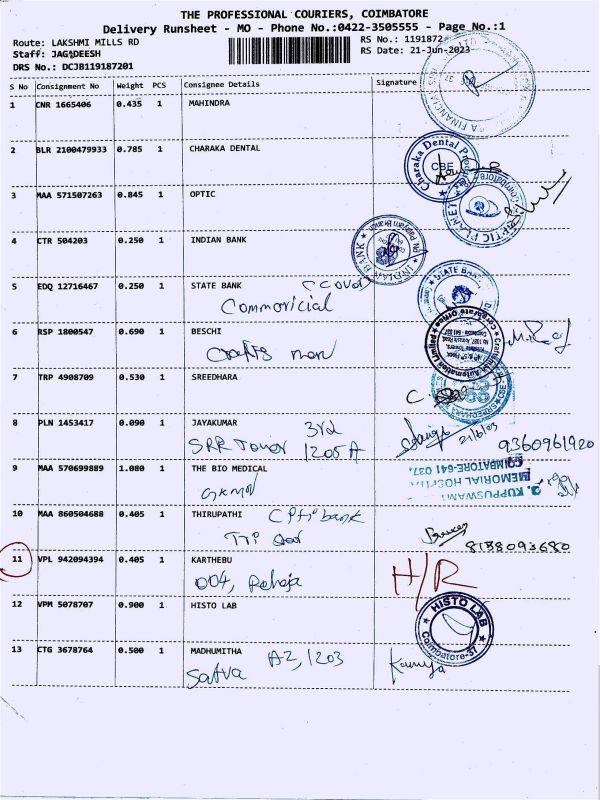 THE PROFESSIONAL COURIERS, COIMBATORE
Delivery Runsheet - MO - Phone No.:0422-3505555 - Page No.:1
Route: LAKSHMI MILLS RD
RS No.: 1191872
Staff: JAGADEESH
RS Date: 21-Jun-2023
DRS No.: DCJB119187201
S No Consignment No Weight PCS Consignee Details Signature
1 CNR 1665406 0.435 1 MAHINDRA
2 BLR 2100479933 0.785 1 CHARAKA DENTAL
Charaka Dental
CBE
3 MAA 571507263 0.845 1 OPTIC
OPTIC PLANET
Coimbatore
4 CTR 504203 0.250 1 INDIAN BANK
INDIAN BANK
5 EDQ 12716467 0.250 1 STATE BANK
STATE BANK
6 RSP 1800547 0.690 1 BESCHI
Automation Limited
Corporate Office
7 TRP 4908709 0.530 1 SREEDHARA
SREEDHARA
CBE
8 PLN 1453417 0.090 1 JAYAKUMAR 3rd
SRR Tower 1205A
21/6/03
9360961920
9 MAA 570699889 1.080 1 THE BIO MEDICAL
G. KUPPUSWAMY
MEMORIAL HOSPITAL
COIMBATORE-641 037.
10 MAA 860504688 0.405 1 THIRUPATHI
8188093680
11 VPL 942094394 0.405 1 KARTHEBU
004, Raheja
H/R
12 VPM 5078707 0.900 1 HISTO LAB
HISTO LAB
Coimbatore-37
13 CTG 3678764 0.500 1 MADHUMITHA A2, 1203
Satva
Kannya